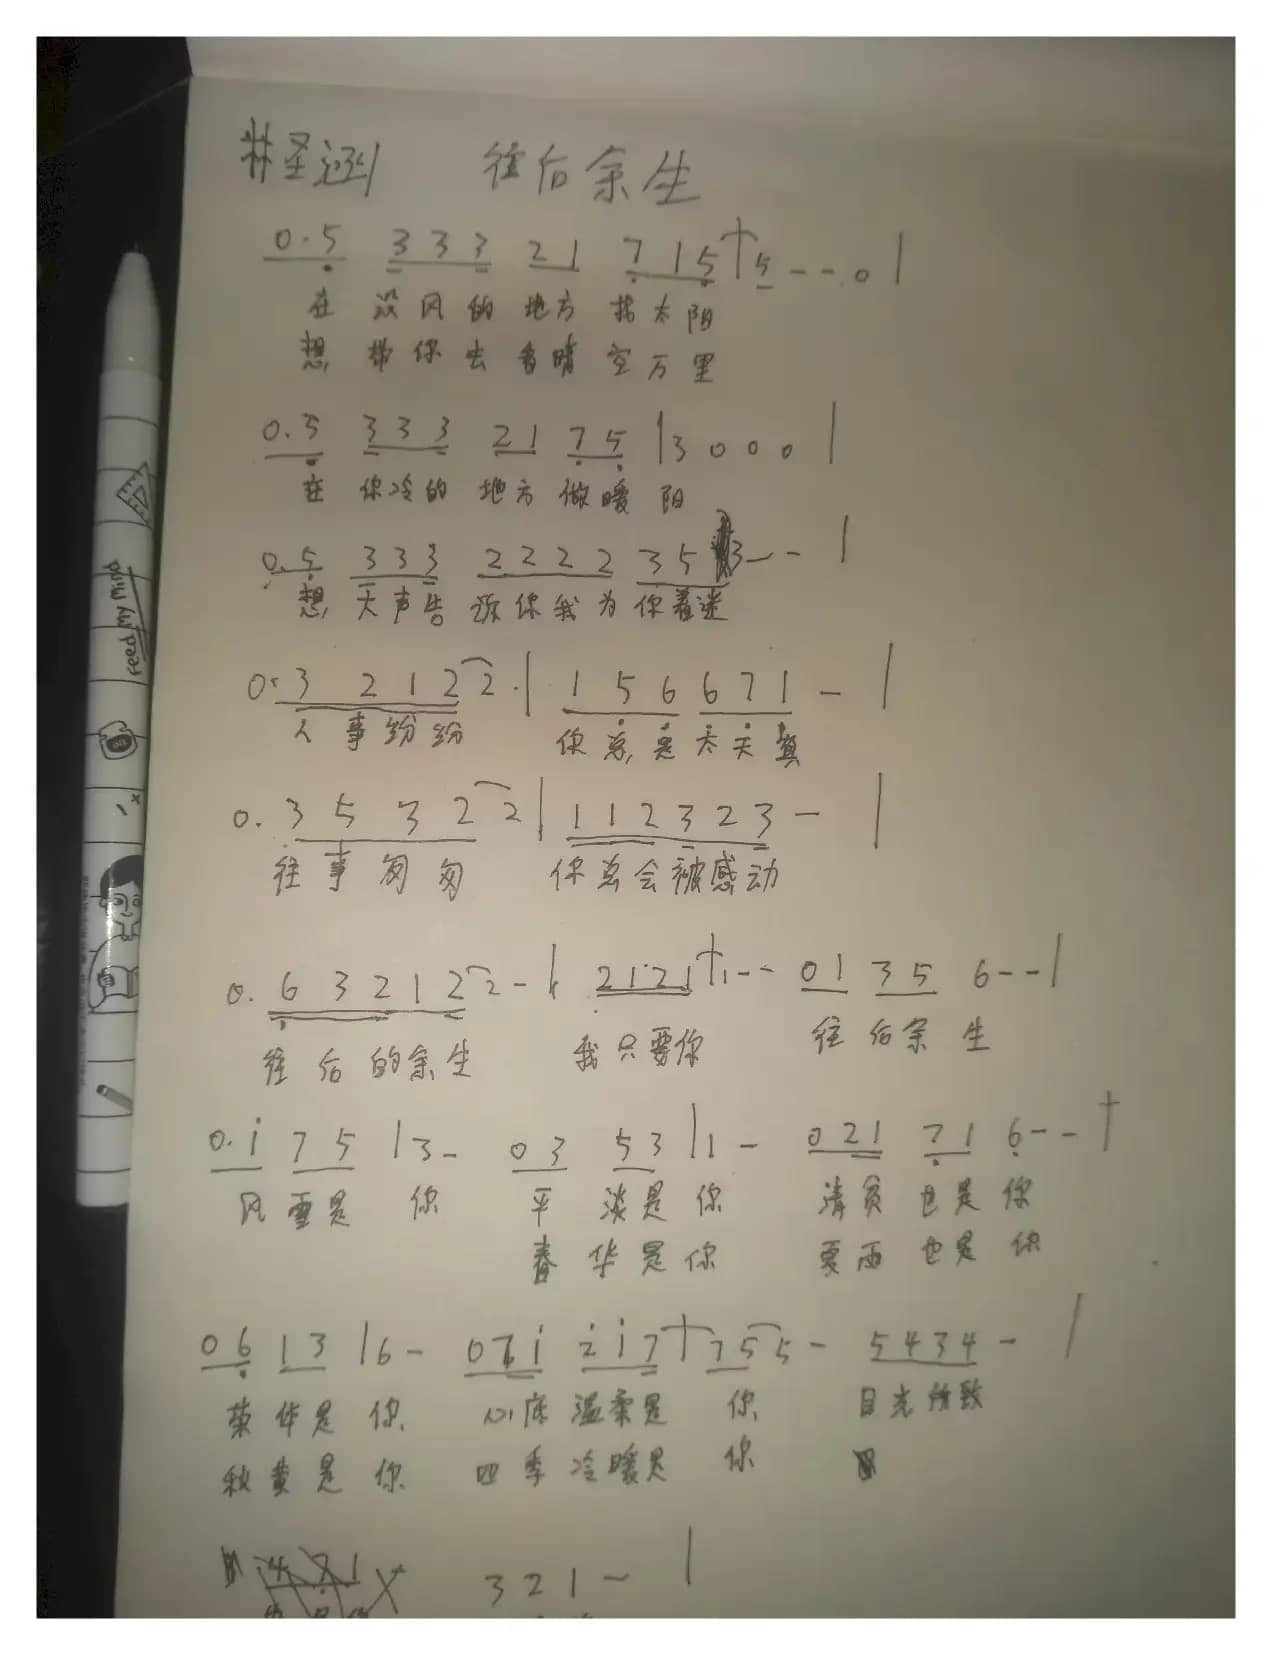 林圣涵 往后余生
0.5 333 21 715 | 5--.0 |
在 没风的 地方 找太阳
想 带你去 看晴 空万里
0.5 333 21 75 | 3000 |
在 你冷的 地方 做暖 阳
0.5 333 2222 353-- |
想 大声告 诉你我为 你着迷
0.3 2 1 2 2. | 1 5 6 6 7 1 - |
人事纷纷 你总是太天真
0. 3 5 3 2 2 | 1 1 2 3 2 3 - |
往事匆匆 你总会被感动
0. 6 3 2 1 2 2 - | 2121 | 1-- 01 35 6-- |
往后的余生 我只要你 往后余生
0.i 75 | 3- 03 53 | 1- 021 71 6-- |
风 雪是 你 平 淡是 你 清贫 也是 你
春 华是 你 夏雨 也是 你
06 13 | 6- i 2i7 | 75 5- 5434- |
荣 华是 你 心底 温柔是 你 目光所致
秋 黄是 你 四季 冷暖是 你
321- |
feed my mind